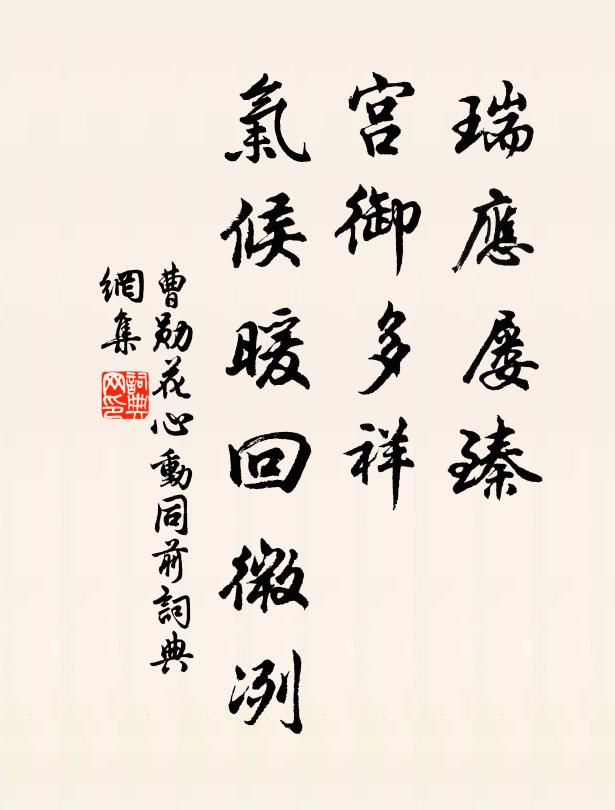 瑞應屢臻
宮御多祥
氣候暖回微冽
曹勛花心動同前詞典
網集
詞典
网印